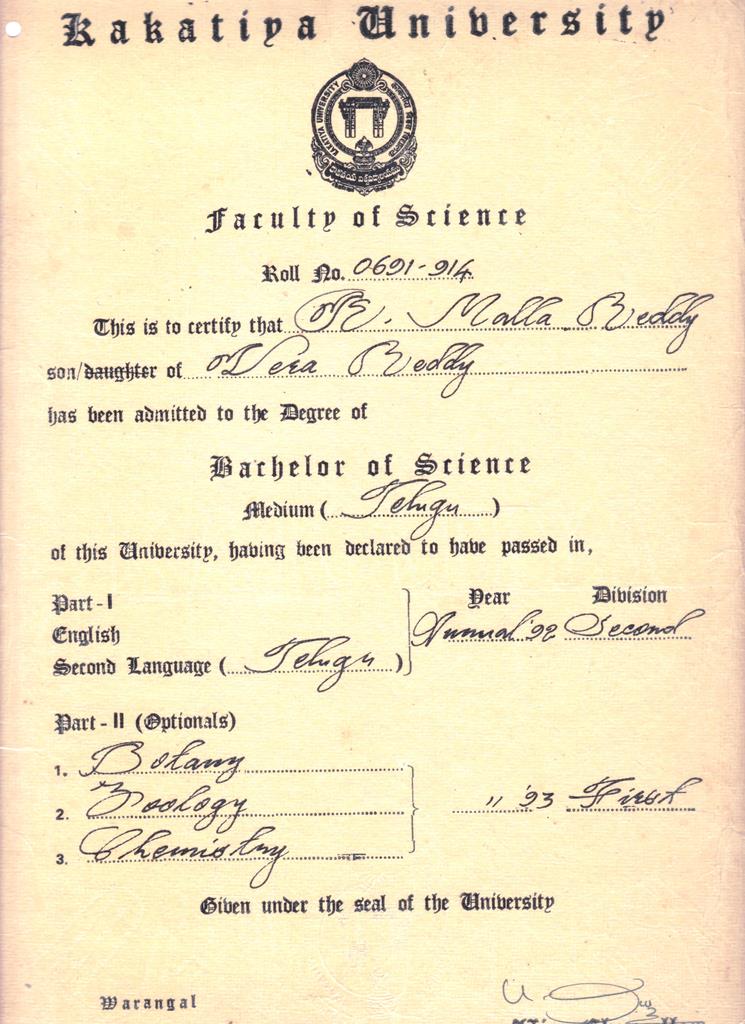 Kakatiya University
KAKATIYA UNIVERSITY
Faculty of Science
Roll No. 0691-914
This is to certify that B. Malla Reddy
son/daughter of Vera Reddy
has been admitted to the Degree of
Bachelor of Science
Medium ( Telugu )
of this University, having been declared to have passed in,
Part-I Year Division
English Annual '92 Second
Second Language ( Telugu )
Part-II (Optionals)
1. Botany
2. Zoology " '93 First
3. Chemistry
Given under the seal of the University
Warangal